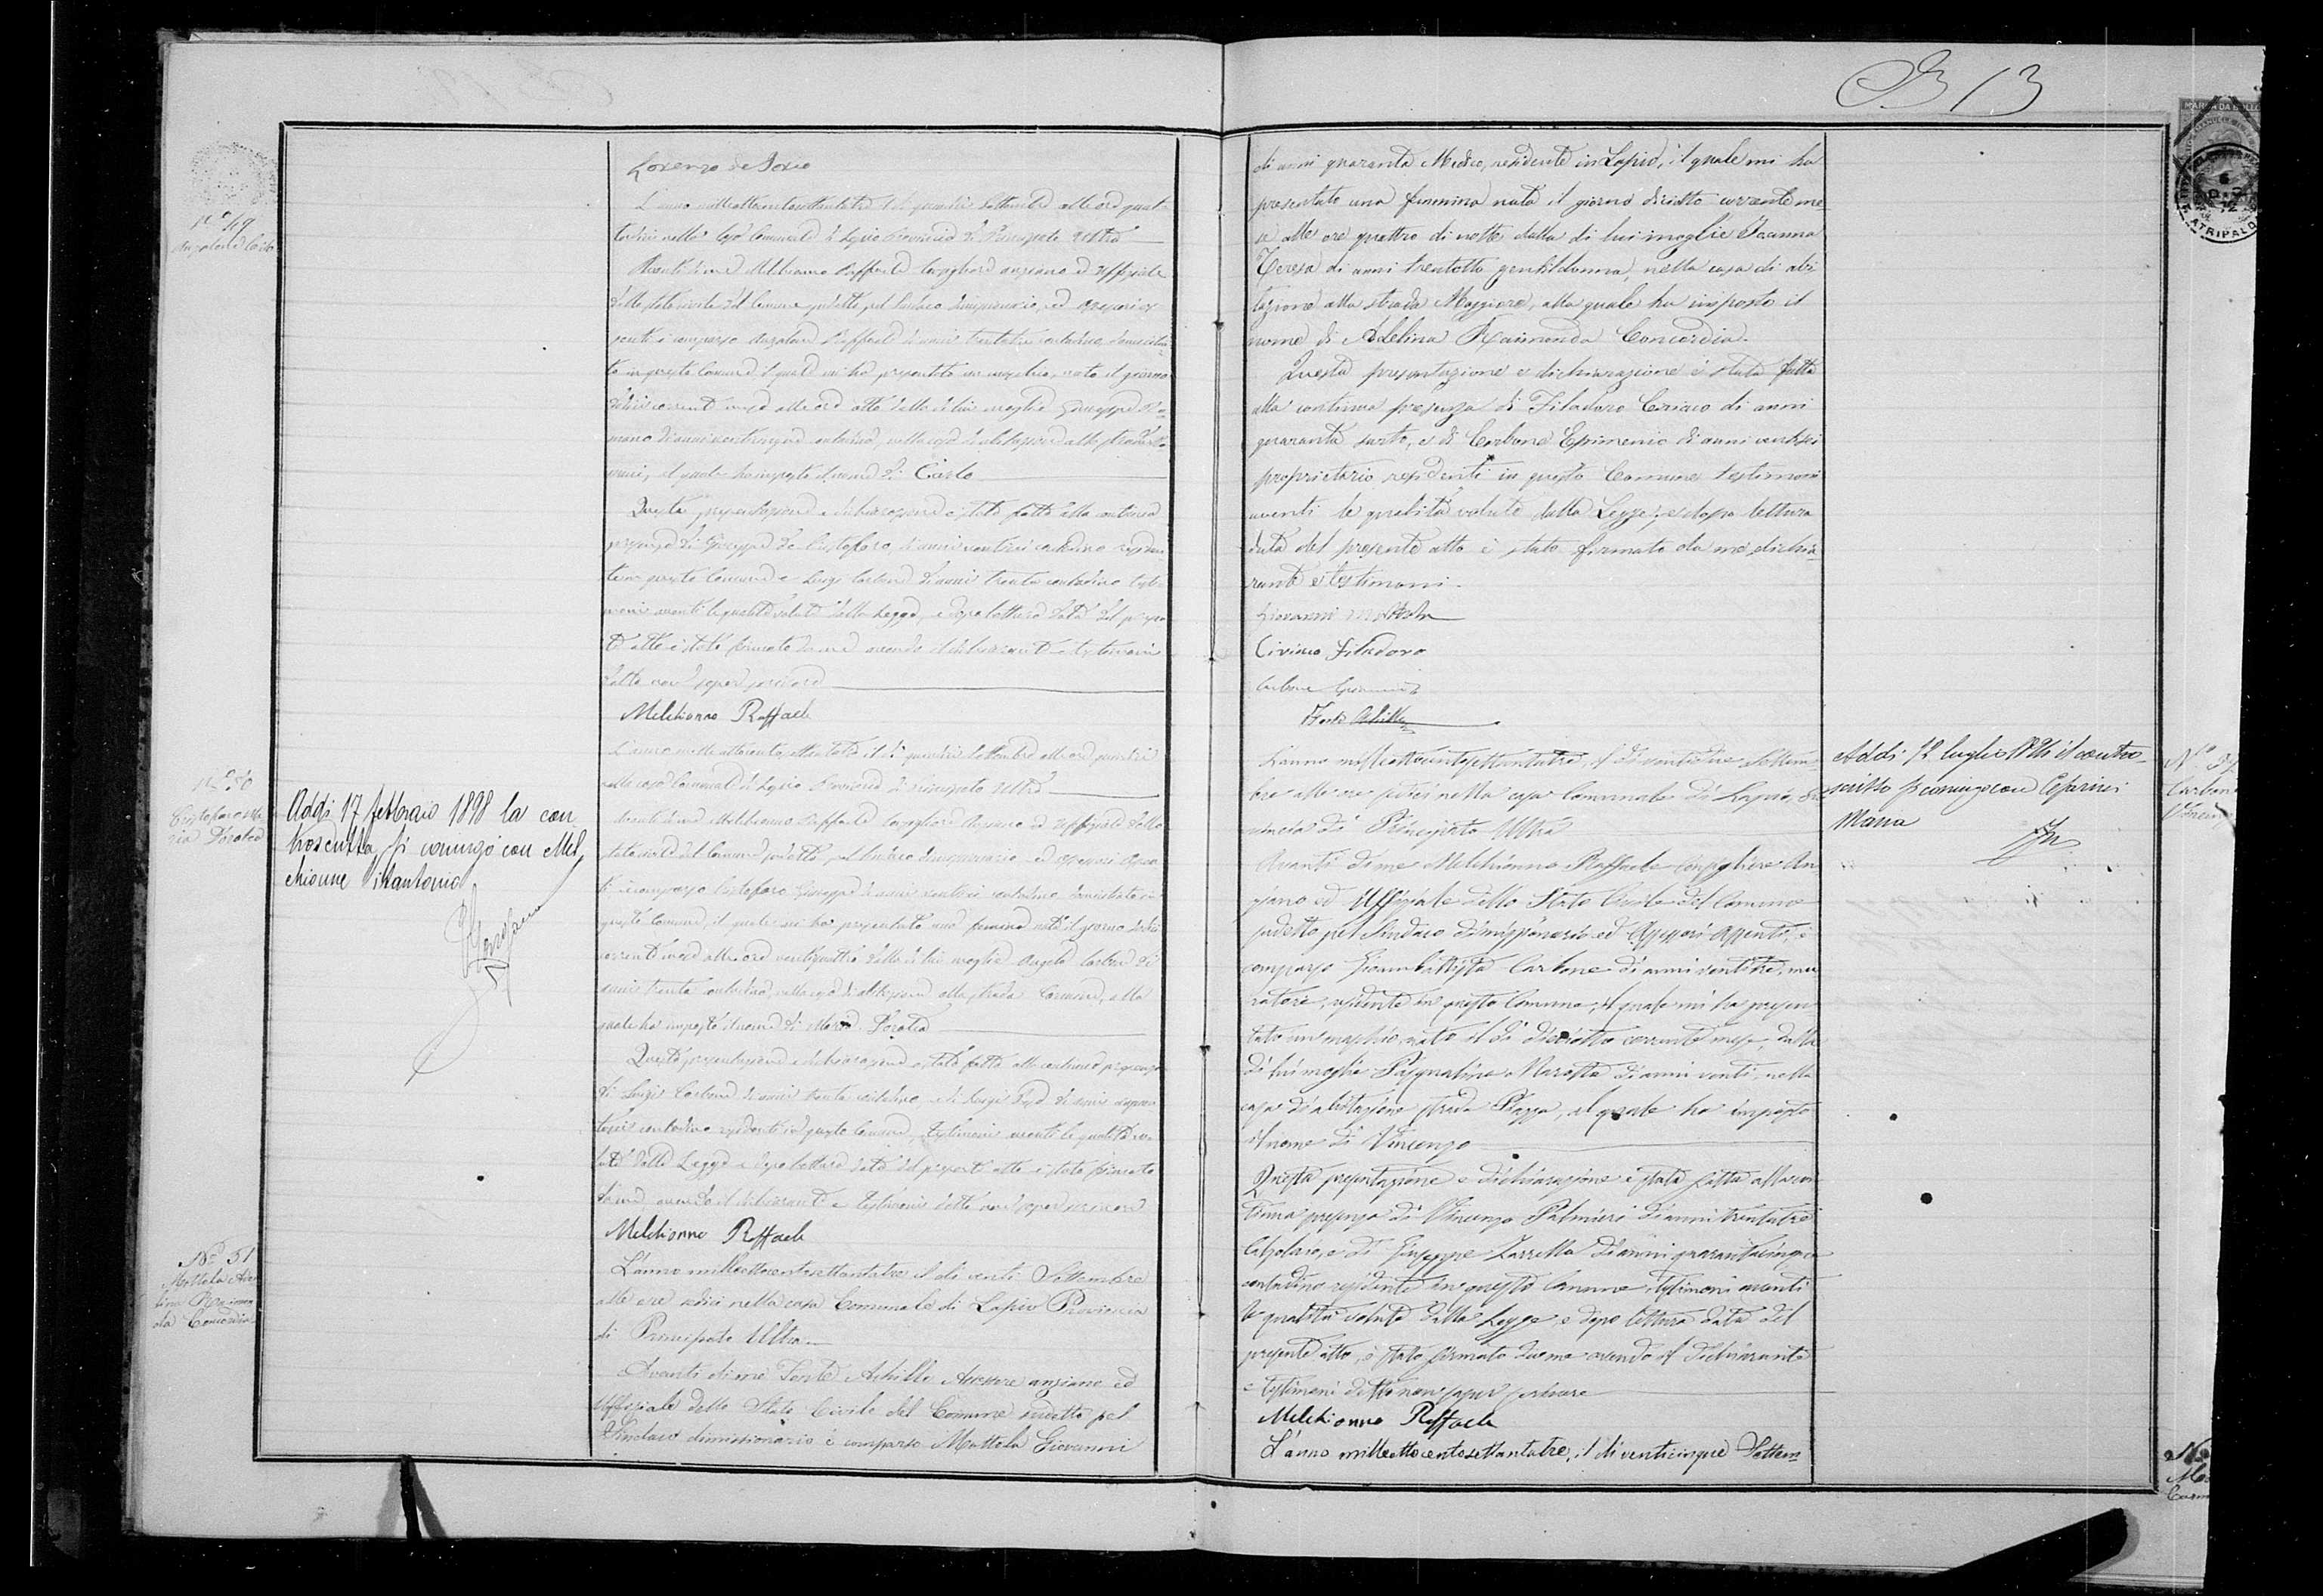 B 13
Lorenzo de Iorio
N.° 49
L'anno milleottocentosettantatre il dì quindici Settembre alle ore quat-
tordici nella Casa Comunale di Lapio Provincia di Principato Ultra
Avanti di me Melchionno Raffaele Consigliere anziano ed Uffiziale
dello Stato civile del Comune sudetto, pel Sindaco dimissionario, ed Assessori as-
senti è comparso Anzalone Raffaele di anni trentatre contadino domicilia-
to in questo Comune il quale mi ha presentato un maschio, nato il giorno
corrente mese alle ore otto dalla di lui moglie Giuseppa Ro-
mano di anni contadina, nella casa di abitazione alla strada
il quale ha imposto il nome di Carlo
Questa presentazione e dichiarazione è stata fatta alla continua
presenza di Giuseppe de Cristofaro, di anni ventisei contadino residen-
te in questo Comune e Luigi Carbone di anni trenta contadino testi-
moni aventi le qualità volute dalla Legge, e dopo lettura data del presen-
te atto è stato firmato da me avendo il dichiarante e testimoni
detto non saper scrivere
Melchionno Raffaele
N.° 50
Cristofaro Ma-
ria Dorotea
L'anno milleottocentosettantatre il dì quindici Settembre alle ore quindici
nella casa Comunale di Lapio Provincia di Principato Ultra
Avanti di me Melchionno Raffaele Consigliere Anziano ed Uffiziale dello
Stato civile del Comune sudetto, pel Sindaco dimissionario ed Assessori Assen-
ti è comparso Cristofaro Giuseppe di anni ventisei contadino domiciliato in
questo Comune, il quale mi ha presentato una femina nata il giorno
corrente mese alle ore ventiquattro dalla di lui moglie Angela Carbone di
anni trenta contadina, nella casa di abitazione alla strada Carmine, alla
quale ha imposto il nome di Maria Dorotea
Questa presentazione e dichiarazione è stata fatta alla continua presenza
di Luigi Carbone di anni trenta contadino, e di Luigi di anni
contadino residenti in questo Comune, testimoni aventi le qualità vo-
lute dalla Legge e dopo lettura data del presente atto è stato firmato
da me avendo il dichiarante e testimoni detto non saper scrivere
Melchionno Raffaele
Addì 17 febbraio 1898 la con
troscritta si coniugò con Mel
chionne Vitantonio
N.° 51
Mottola Ade-
lina Raimon
da Concordia
L'anno milleottocentosettantatre il dì venti Settembre
alle ore sedici nella casa Comunale di Lapio Provincia
di Principato Ultra
Avanti di me Forte Achille Assessore anziano ed
Uffiziale dello Stato Civile del Comune sudetto pel
Sindaco dimissionario è comparso Mottola Giovanni
di anni quaranta Medico, residente in Lapio, il quale mi ha
presentato una femmina nata il giorno diciotto corrente me-
se alle ore quattro di notte dalla di lui moglie
Teresa di anni trentotto gentildonna, nella casa di abi
tazione alla strada Maggiore, alla quale ha imposto il
nome di Adelina Raimonda Concordia.
Questa presentazione e dichiarazione è stata fatta
alla continua presenza di Filadoro Ciriaco di anni
quaranta sarto, e di Carbone Epimenio di anni ventisei
proprietario residenti in questo Comune testimoni
aventi le qualità volute dalla Legge; e dopo lettura
data del presente atto è stato firmato da me dichia-
rante e testimoni.
Giovanni Mottola
Ciriaco Filadoro
Carbone Epimenio
Forte Achille
L'anno milleottocentosettantatre, il dì ventidue Settem-
bre alle ore sedici nella casa Comunale di Lapio, Pro
vincia di Principato Ultra
Avanti di me Melchionno Raffaele Consigliere An
ziano ed Uffiziale dello Stato Civile del Comune
sudetto pel Sindaco dimissionario ed Assessori Assenti, è
comparso Giambattista Carbone di anni ventitre, mu
ratore, residente in questo Comune, il quale mi ha presen
tato un maschio, nato il dì diciotto corrente mese, dalla
di lui moglie Pasqualina Marotta di anni venti, nella
casa di abitazione strada Piazza, al quale ha imposto
il nome di Vincenzo
Questa presentazione e dichiarazione è stata fatta alla con
tinua presenza di Vincenzo Palmieri di anni trentatre
Calzolaio, e di Giuseppe Zarrella di anni quarantacinque
contadino residenti in questo Comune, testimoni aventi
le qualità volute dalla Legge, e dopo lettura data del
presente atto, è stato firmato da me avendo il dichiarante
e testimoni detto non saper scrivere
Melchionno Raffaele
L'anno milleottocentosettantatre, il dì venticinque Settem-
Addì 12 luglio 1896 il contro-
scritto si coniugò con Ceparini
Maria
N.°
Carbon
Vincenz
MARCA DA BOLLO
ATRIPALDA